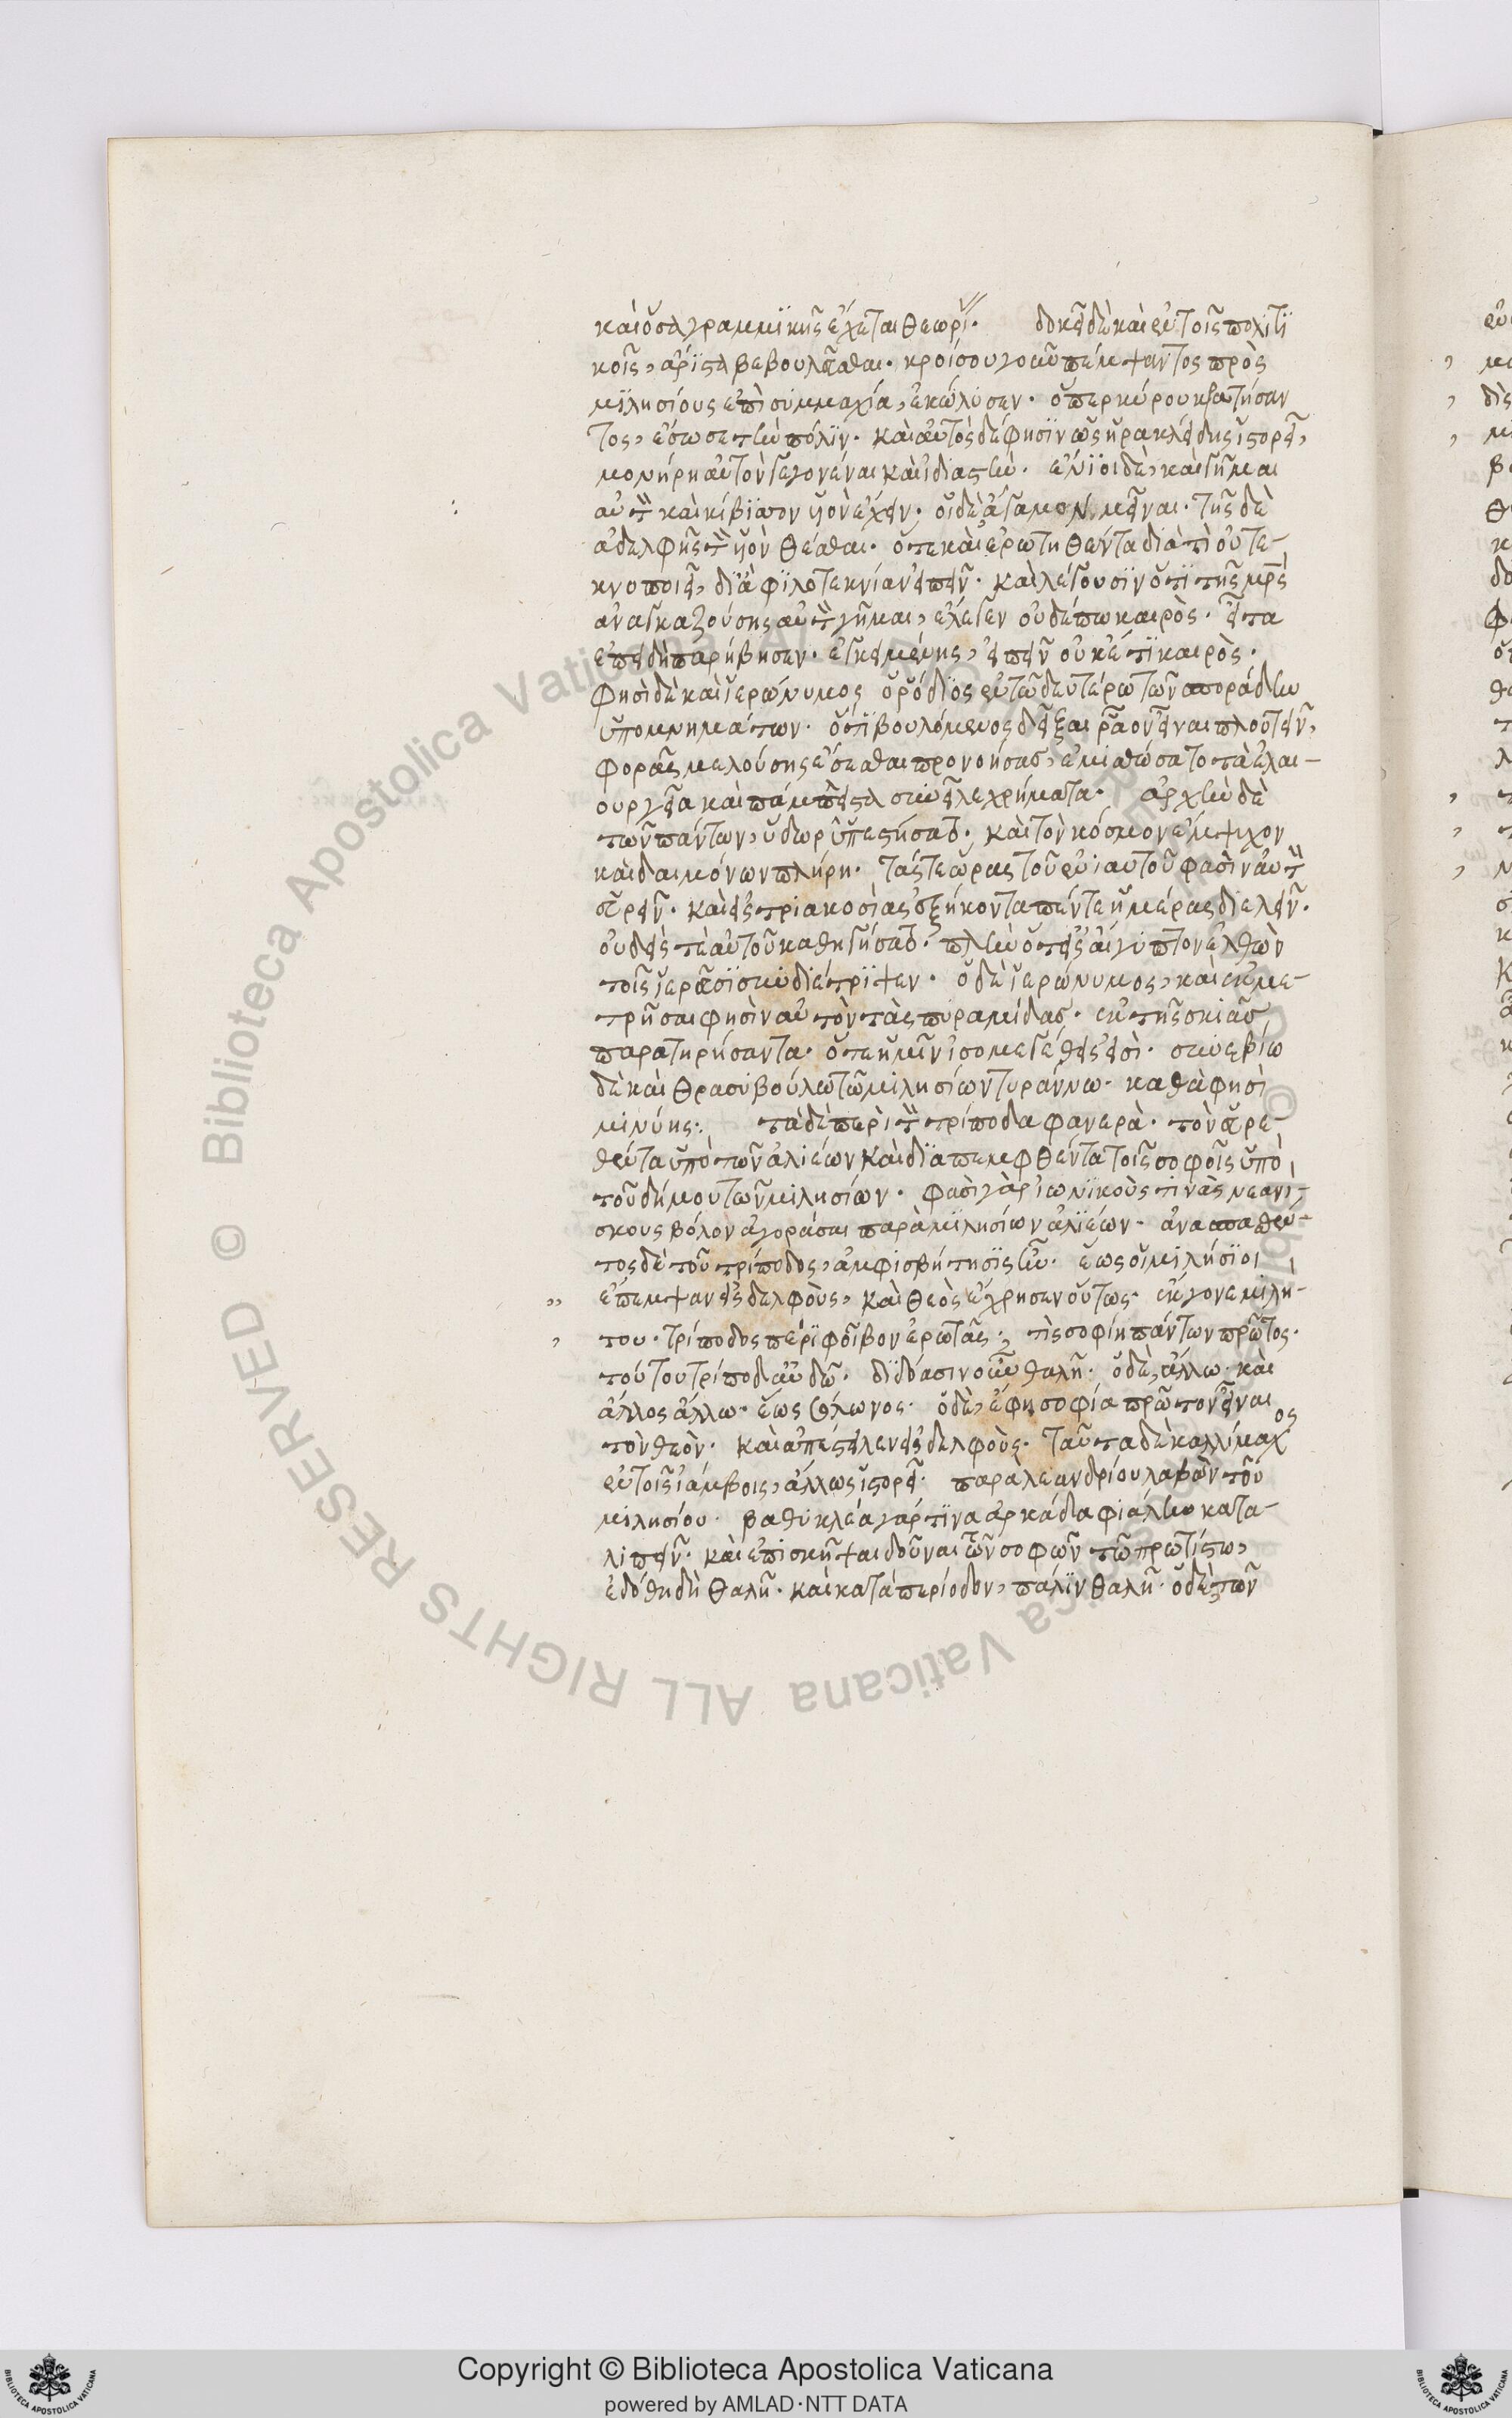 καὶ ὅσα γραμμικῆς ἔχεται θεωρί. δοκεῖ δὲ καὶ ἐν τοῖς πολιτι
κοῖς, ἄριστα βεβουλεῦσθαι. κροίσου γοῦν πέμψαντος πρὸς
μιλησίους ἐπὶ συμμαχία, ἐκώλυσεν. ὅπερ κύρου κρατήσαν
τος, ἔσωσε τὴν πόλιν. καὶ αὐτὸς δέ φησιν ὡς ἡρακλείδης ἱστορεῖ,
μονήρη αὐτὸν γεγονέναι καὶ ἰδιαστὴν. ἔνιοι δὲ, καὶ γῆμαι
αὐτὸν καὶ κίβισσον υἱὸν ἔχειν. οἱ δὲ ἄγαμον μεῖναι. τῆς δὲ
ἀδελφῆς τὸν υἱὸν θέσθαι. ὅτε καὶ ἐρωτηθέντα διὰ τί οὐ τε-
κνοποιεῖ, διὰ φιλοτεκνίαν εἰπεῖν. καὶ λέγουσιν ὅτι τῆς μρς
ἀναγκαζούσης αὐτὸν γῆμαι, ἔλεγεν οὐδέπω καιρὸς. εἶτα
ἐπειδὴ παρήβησεν. ἐγκειμένης, εἰπεῖν οὐκέτι καιρὸς.
φησὶ δὲ καὶ ἱερώνυμος ὁ ῥόδιος ἐν τῶ δευτέρω τῶν σποράδην
ὑπομνημάτων. ὅτι βουλόμενος δεῖξαι ῥᾶον εἶναι πλουτεῖν,
φορᾶς μελούσης ἔσεσθαι προνοήσας, ἐμισθώσατο τὰ ἐλαι-
ουργεῖα καὶ πάμπλειστα συνεῖλε χρήματα. ἀρχὴν δὲ
τῶν πάντων, ὕδωρ ὑπεστήσατο. καὶ τὸν κόσμον ἔμψυχον
καὶ δαιμόνων πλήρη. τάς τε ὥρας τοῦ ἐνιαυτοῦ φασὶν αὐτὸν
εὑρεῖν. καὶ εἰς τριακοσίας ἑξήκοντα πέντε ἡμέρας διελεῖν.
οὐδεὶς τὲ αὐτοῦ καθηγήσατο. πλὴν ὅτ' εἰς αἴγυπτον ἐλθὼν
τοῖς ἱερεῦσι συνδιέτριψεν. ὁ δὲ ἱερώνυμος, καὶ ἐκμε-
τρῆσαι φησὶν αὐτὸν τὰς πυραμίδας. ἐκ τῆς σκιᾶς
παρατηρήσαντα. ὅτε ἡμῖν ἰσομεγέθεις εἰσὶ. συνεβίω
δὲ καὶ θρασυβούλω τῶ μιλησίων τυράννω. καθά φησὶ
μινύης. τὰ δὲ περὶ τὸν τρίποδα φανερὰ. τὸν εὑρε-
θέντα ὑπὸ τῶν ἁλιέων καὶ διαπεμφθέντα τοῖς σοφοῖς ὑπὸ
τοῦ δήμου τῶν μιλησίων. φασὶ γὰρ ἰωνικούς τινὰς νεανι-
σκους βόλον ἀγοράσαι παρὰ μιλησίων ἁλιέων. ἀνασπασθέν-
τος δὲ τοῦ τρίποδος, ἀμφισβήτησις ἦν. ἕως οἱ μιλήσιοι
ἔπεμψαν εἰς δελφοὺς, καὶ θεὸς ἔχρησεν οὕτως. ἔκγονε μιλή-
του. τρίποδος πέρι φοῖβον ἐρωτᾶς; τίς σοφίη πάντων πρῶτος.
τούτου τρίποδ' αὐδῶ. διδόασιν οὖν θαλῆ. ὁ δὲ, ἄλλω. καὶ
ἄλλος ἄλλω. ἕως σόλωνος. ὁ δὲ, ἔφη σοφία πρῶτον εἶναι
τὸν θεὸν. καὶ ἀπέστειλεν εἰς δελφοὺς. ταῦτα δὲ καλλίμαχος
ἐν τοῖς ἰάμβοις, ἄλλως ἱστορεῖ. παρὰ λεανδρίου λαβὼν τοῦ
μιλησίου. βαθυκλέα γάρ τινα ἀρκάδα φιάλην κατα-
λιπεῖν. καὶ ἐπισκῆψαι δοῦναι τῶν σοφῶν τῶ πρωτίστω,
ἐδόθη δὴ θαλῆ. καὶ κατὰ περίοδον, πάλιν θαλῆ. ὁ δὲ τῶν
Copyright © Biblioteca Apostolica Vaticana
powered by AMLAD·NTT DATA